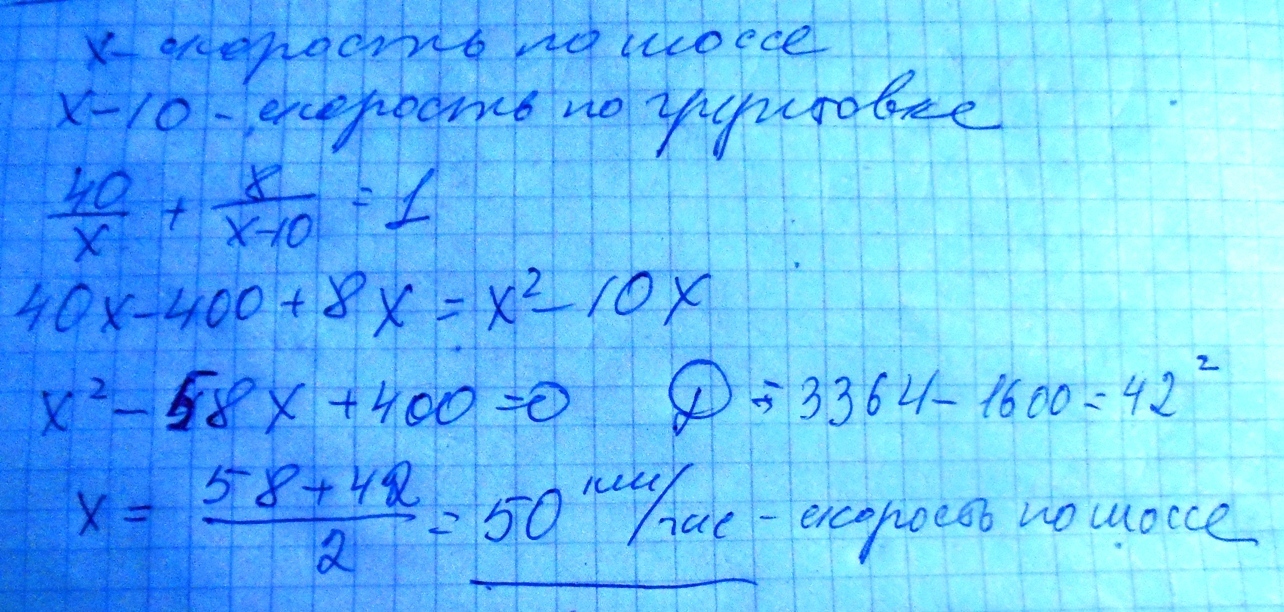 x - скорость по шоссе
x-10 - скорость по грунтовке
40/x + 8/(x-10) = 1
40x-400+8x = x²-10x
x²-58x+400=0 D = 3364-1600=42²
x = (58+42)/2 = 50 км/час - скорость по шоссе